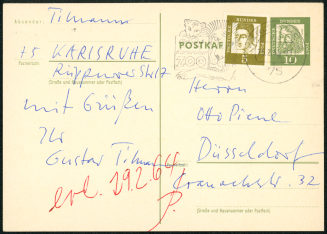 Absender:
Tilmann
75 KARLSRUHE
Rüppurrerstr 17
(Straße und Hausnummer oder Postfach)
mit Grüßen
Ihr
Gustav Tilmann
erl. 29.2.64
P.
POSTKARTE
ZOO
75
5
10
Herrn
Otto Piene
Düsseldorf
Cranachstr. 32
(Straße und Hausnummer oder Postfach)